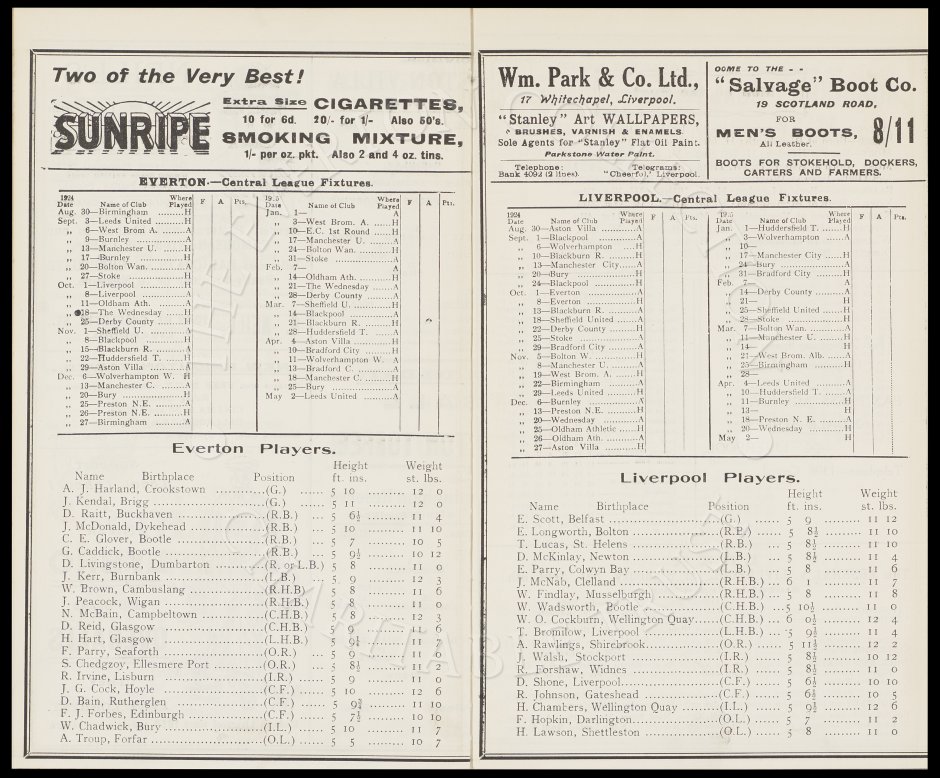 Two of the Very Best!
SUNRIPE
Extra Size CIGARETTES,
10 for 6d. 20/- for 1/- Also 50's.
SMOKING MIXTURE,
1/- per oz. pkt. Also 2 and 4 oz. tins.
EVERTON.—Central League Fixtures.
1924 Date Name of Club Where Played F A Pts.
Aug. 30—Birmingham .........H
Sept. 3—Leeds United .........A
„ 6—West Brom A. .........A
„ 9—Burnley .........A
„ 13—Manchester U. .........H
„ 17—Burnley .........H
„ 20—Bolton Wan. .........A
„ 27—Stoke .........H
Oct. 1—Liverpool .........H
„ 8—Liverpool .........A
„ 11—Oldham Ath. .........A
„ 18—The Wednesday .........H
„ 25—Derby County .........H
Nov. 1—Sheffield U. .........A
„ 8—Blackpool .........H
„ 15—Blackburn R. .........A
„ 22—Huddersfield T. .........H
„ 29—Aston Villa .........A
Dec. 6—Wolverhampton W. H
„ 13—Manchester C. .........A
„ 20—Bury .........H
„ 25—Preston N.E. .........A
„ 26—Preston N.E. .........H
„ 27—Birmingham .........A
1925 Date Name of Club Where Played F A Pts.
Jan. 1— A
„ 3—West Brom. A. .........H
„ 10—E.C. 1st Round .........H
„ 17—Manchester U. .........A
„ 24—Bolton Wan. .........H
„ 31—Stoke .........A
Feb. 7— A
„ 14—Oldham Ath. .........H
„ 21—The Wednesday .........A
„ 28—Derby County .........A
Mar. 7—Sheffield U. .........H
„ 14—Blackpool .........A
„ 21—Blackburn R. .........H
„ 28—Huddersfield T. .........A
Apr. 4—Aston Villa .........H
„ 10—Bradford City .........H
„ 11—Wolverhampton W. A
„ 13—Bradford C. .........A
„ 18—Manchester C. .........H
„ 25—Bury .........A
May 2—Leeds United .........A
Everton Players.
Name Birthplace Position Height ft. ins. Weight st. lbs.
A. J. Harland, Crookstown .........(G.) ...... 5 10 ......... 12 0
J. Kendal, Brigg .........(G.) ...... 5 11 ......... 12 0
D. Raitt, Buckhaven .........(R.B.) ... 5 6½ ......... 11 4
J. McDonald, Dykehead .........(R.B.) ... 5 10 ......... 11 10
C. E. Glover, Bootle .........(R.B.) ... 5 7 ......... 10 5
G. Caddick, Bootle .........(R.B.) ... 5 9½ ......... 10 12
D. Livingstone, Dumbarton .........(R. or L.B.) 5 8 ......... 11 0
J. Kerr, Burnbank .........(L.B.) ... 5 9 ......... 12 3
W. Brown, Cambuslang .........(R.H.B) 5 8 ......... 11 6
J. Peacock, Wigan .........(R.H.B.) ... 5 8 ......... 11 0
N. McBain, Campbeltown .........(C.H.B.) 5 8 ......... 12 3
D. Reid, Glasgow .........(C.H.B.) ... 5 9 ......... 11 6
H. Hart, Glasgow .........(L.H.B.) ... 5 9¼ ......... 11 7
F. Parry, Seaforth .........(O.R.) ... 5 9 ......... 11 0
S. Chedgzoy, Ellesmere Port .........(O.R.) ... 5 8½ ......... 11 2
R. Irvine, Lisburn .........(I.R.) ... 5 9 ......... 11 0
J. G. Cock, Hoyle .........(C.F.) ... 5 10 ......... 12 6
D. Bain, Rutherglen .........(C.F.) ... 5 9¾ ......... 11 10
F. J. Forbes, Edinburgh .........(C.F.) ... 5 7½ ......... 10 10
W. Chadwick, Bury .........(I.L.) ... 5 10 ......... 11 7
A. Troup, Forfar .........(O.L.) ... 5 5 ......... 10 7
Wm. Park & Co. Ltd.,
17 Whitechapel, Liverpool.
"Stanley" Art WALLPAPERS,
BRUSHES, VARNISH & ENAMELS.
Sole Agents for "Stanley" Flat Oil Paint.
Parkstone Water Paint.
Telephone: Bank 4092 (2 lines).
Telegrams: "Cheerful," Liverpool.
COME TO THE - -
"Salvage" Boot Co.
19 SCOTLAND ROAD,
FOR
MEN'S BOOTS, 8/11
All Leather.
BOOTS FOR STOKEHOLD, DOCKERS,
CARTERS AND FARMERS.
LIVERPOOL.—Central League Fixtures.
1924 Date Name of Club Where Played F A Pts.
Aug. 30—Aston Villa .........A
Sept. 1—Blackpool .........A
„ 6—Wolverhampton ....H
„ 10—Blackburn R. .........H
„ 13—Manchester City .....A
„ 20—Bury .........H
„ 24—Blackpool .........H
Oct. 1—Everton .........A
„ 8—Everton .........H
„ 13—Blackburn R. .........A
„ 18—Sheffield United .....A
„ 22—Derby County .........H
„ 25—Stoke .........A
„ 29—Bradford City .........A
Nov. 5—Bolton W. .........H
„ 8—Manchester U. .........A
„ 19—West Brom. A. .........H
„ 22—Birmingham .........A
„ 29—Leeds United .........H
Dec. 6—Burnley .........A
„ 13—Preston N.E. .........H
„ 20—Wednesday .........A
„ 25—Oldham Athletic ....H
„ 26—Oldham Ath. .........A
„ 27—Aston Villa .........H
Date Name of Club Where Played F A Pts.
Jan. 1—Huddersfield T. ......H
„ 3—Wolverhampton .......A
„ 10—
„ 17—Manchester City .....H
„ 24—Bury .........A
„ 31—Bradford City .........H
Feb. 7— A
„ 14—Derby County .........A
„ 21— H
„ 25—Sheffield United .....H
„ 28—Stoke .........H
Mar. 7—Bolton Wan. .........A
„ 11—Manchester U. .........H
„ 14— H
„ 21—West Brom. Alb. .....A
„ 25—Birmingham .........H
„ 28— A
Apr. 4—Leeds United .........A
„ 10—Huddersfield T. ......A
„ 11—Burnley .........H
„ 13— H
„ 18—Preston N. E. .........A
„ 20—Wednesday .........H
May 2— H
Liverpool Players.
Name Birthplace Position Height ft. ins. Weight st. lbs.
E. Scott, Belfast .........(G.) ...... 5 9 ......... 11 12
E. Longworth, Bolton .........(R.B.) ... 5 8½ ......... 11 10
T. Lucas, St. Helens .........(R.B.) ... 5 8½ ......... 11 10
D. McKinlay, Newton .........(L.B.) ... 5 8½ ......... 11 4
E. Parry, Colwyn Bay .........(L.B.) ... 5 8 ......... 11 6
J. McNab, Clelland .........(R.H.B.) ... 6 1 ......... 11 7
W. Findlay, Musselburgh .........(R.H.B.) ... 5 8 ......... 11 8
W. Wadsworth, Bootle .........(C.H.B.) ... 5 10½ ......... 11 0
W. O. Cockburn, Wellington Quay......(C.H.B.) ... 6 0½ ......... 12 4
T. Bromilow, Liverpool .........(L.H.B.) ... 5 9½ ......... 11 4
A. Rawlings, Shirebrook.........(O.R.) ... 5 11½ ......... 12 2
J. Walsh, Stockport .........(I.R.) ... 5 8½ ......... 10 12
R. Forshaw, Widnes .........(I.R.) ... 5 8½ ......... 11 0
D. Shone, Liverpool.........(C.F.) ... 5 6½ ......... 10 10
R. Johnson, Gateshead .........(C.F.) ... 5 6½ ......... 10 5
H. Chambers, Wellington Quay .........(I.L.) ... 5 9½ ......... 12 6
F. Hopkin, Darlington.........(O.L.) ... 5 7 ......... 11 2
H. Lawson, Shettleston .........(O.L.) ... 5 8 ......... 11 0